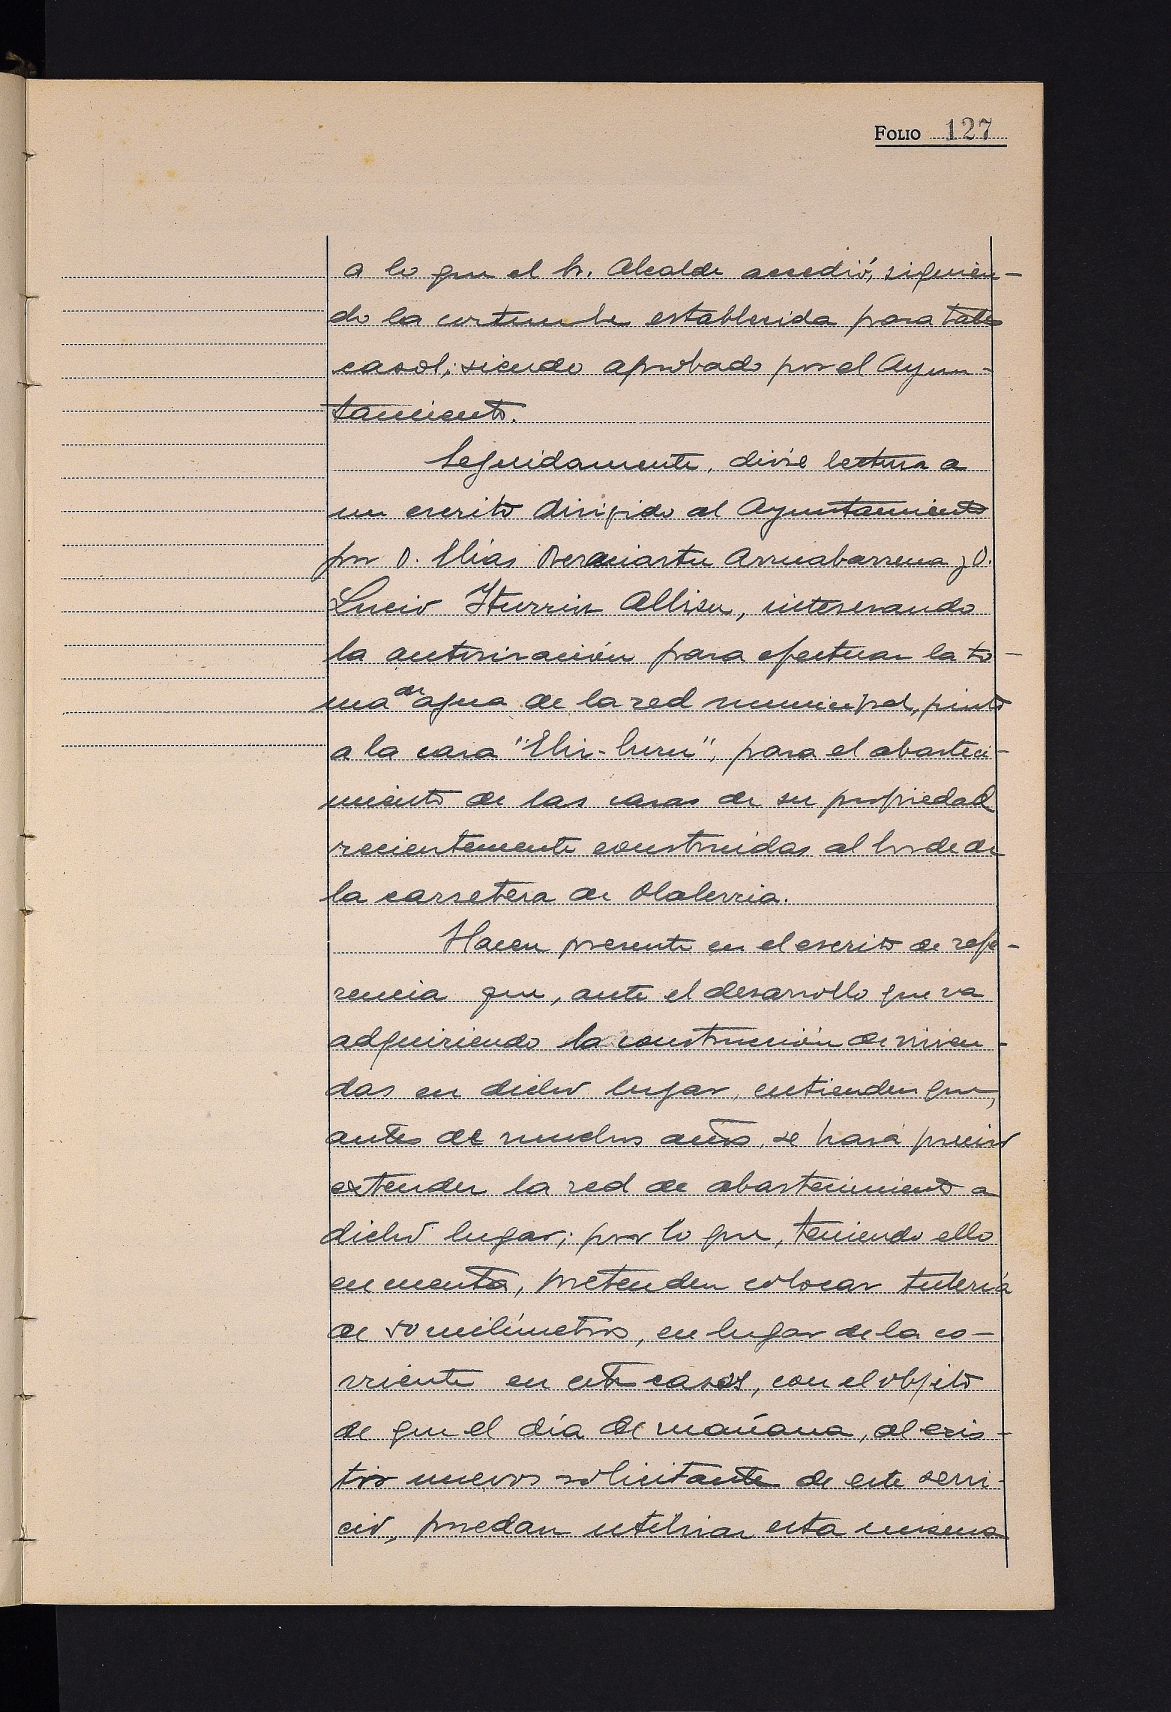 FOLIO 127
a lo que el Sr. Alcalde accedió, siguien-
do la costumbre establecida para tales
casos; siendo aprobado por el Ayun-
tamiento.
Seguidamente, dióse lectura a
un escrito dirigido al Ayuntamiento
por D. Elías Beraciartu Arruabarrena y D.
Lucio Iturrioz Albisu, interesando
la autorización para efectuar la to-
ma de agua de la red municipal, junto
a la casa "Elir-buru", para el abasteci-
miento de las casas de su propiedad
recientemente construidas al borde de
la carretera de Olaberria.
Hacen presente en el escrito de refe-
rencia que, ante el desarrollo que va
adquiriendo la construcción de vivien-
das en dicho lugar, entienden que,
antes de muchos años, se hará preciso
extender la red de abastecimiento a
dicho lugar; por lo que, teniendo ello
en cuenta, pretenden colocar tubería
de 50 milímetros, en lugar de la co-
rriente en estos casos, con el objeto
de que el día de mañana, al exis-
tir nuevos solicitante de este servi-
cio, puedan utilizar esta misma